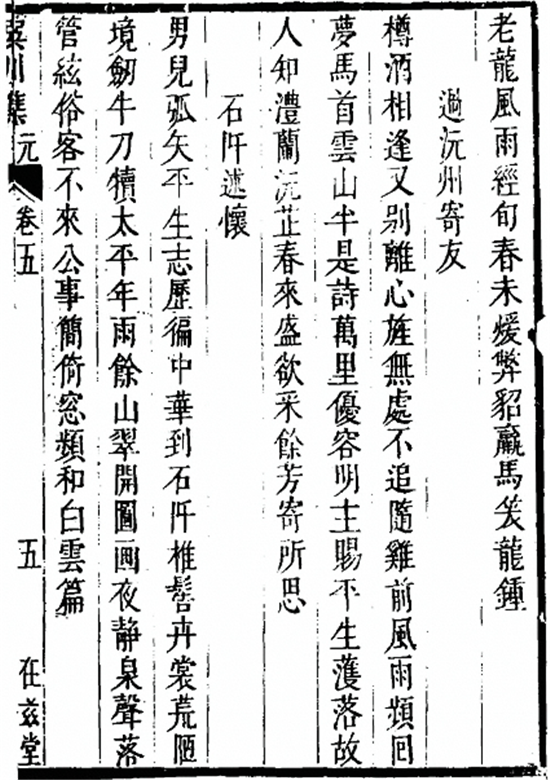 老龍風雨經旬春未煖弊貂羸馬笑龍鍾
過沅州寄友
樽酒相逢又别離心旌無處不追隨雞前風雨頻囘
夢馬首雲山半是詩萬里優容明主賜平生濩落故
人知澧蘭沅芷春來盛欲采餘芳寄所思
石阡述懷
男兒弧矢平生志歷徧中華到石阡椎髻卉裳荒陋
境劒牛刀犢太平年雨餘山翠開圖画夜静泉聲落
管絃俗客不來公事簡倚窓頻和白雲篇
川集 元 卷五 五 在兹堂